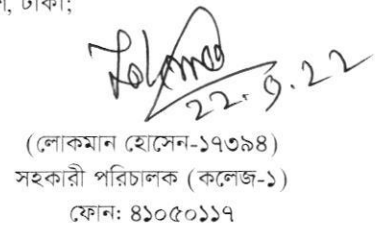 , ঢাকা;
22.9.22
(লোকমান হোসেন-১৭৩৯৪)
সহকারী পরিচালক (কলেজ-১)
ফোন: ৪১০৫০১১৭